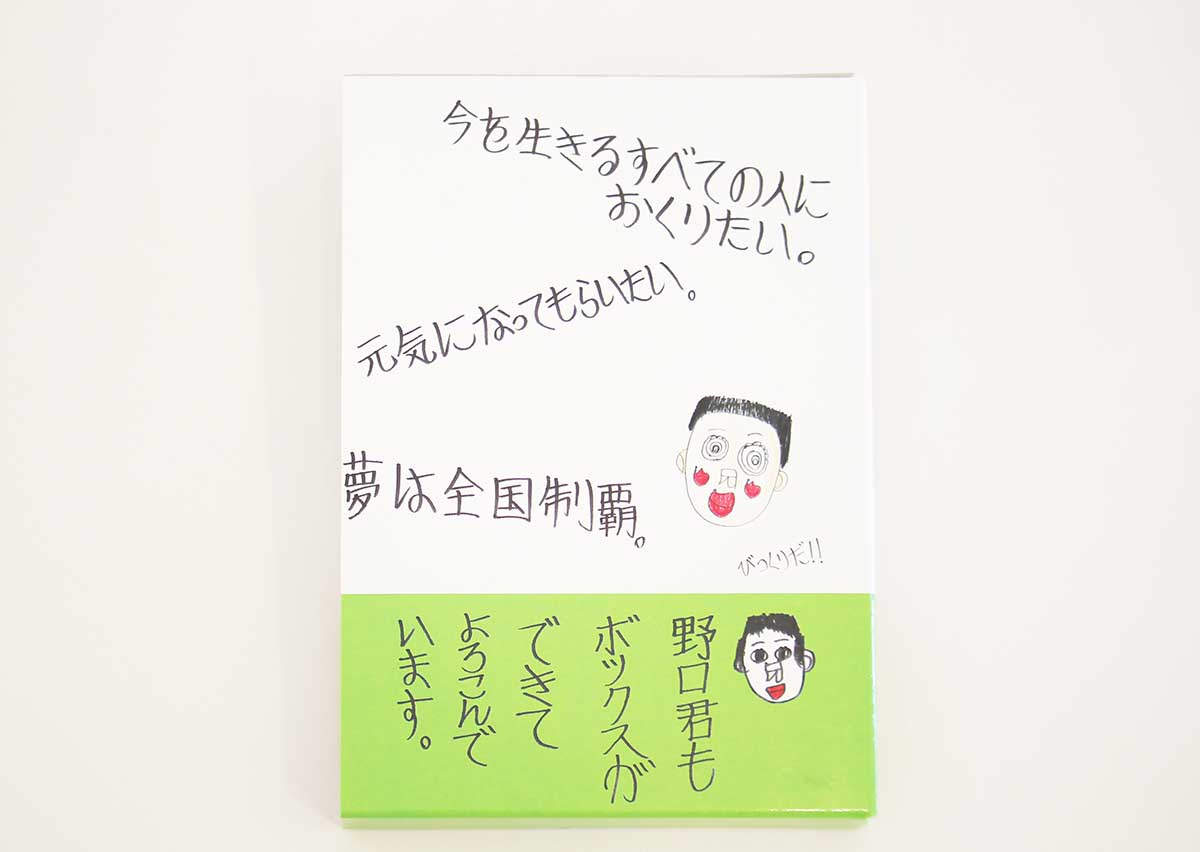 今を生きるすべての人に
おくりたい。
元気になってもらいたい。
夢は全国制覇。
びっくりだ!!
野口君も
ボックスが
できて
よろこんで
います。